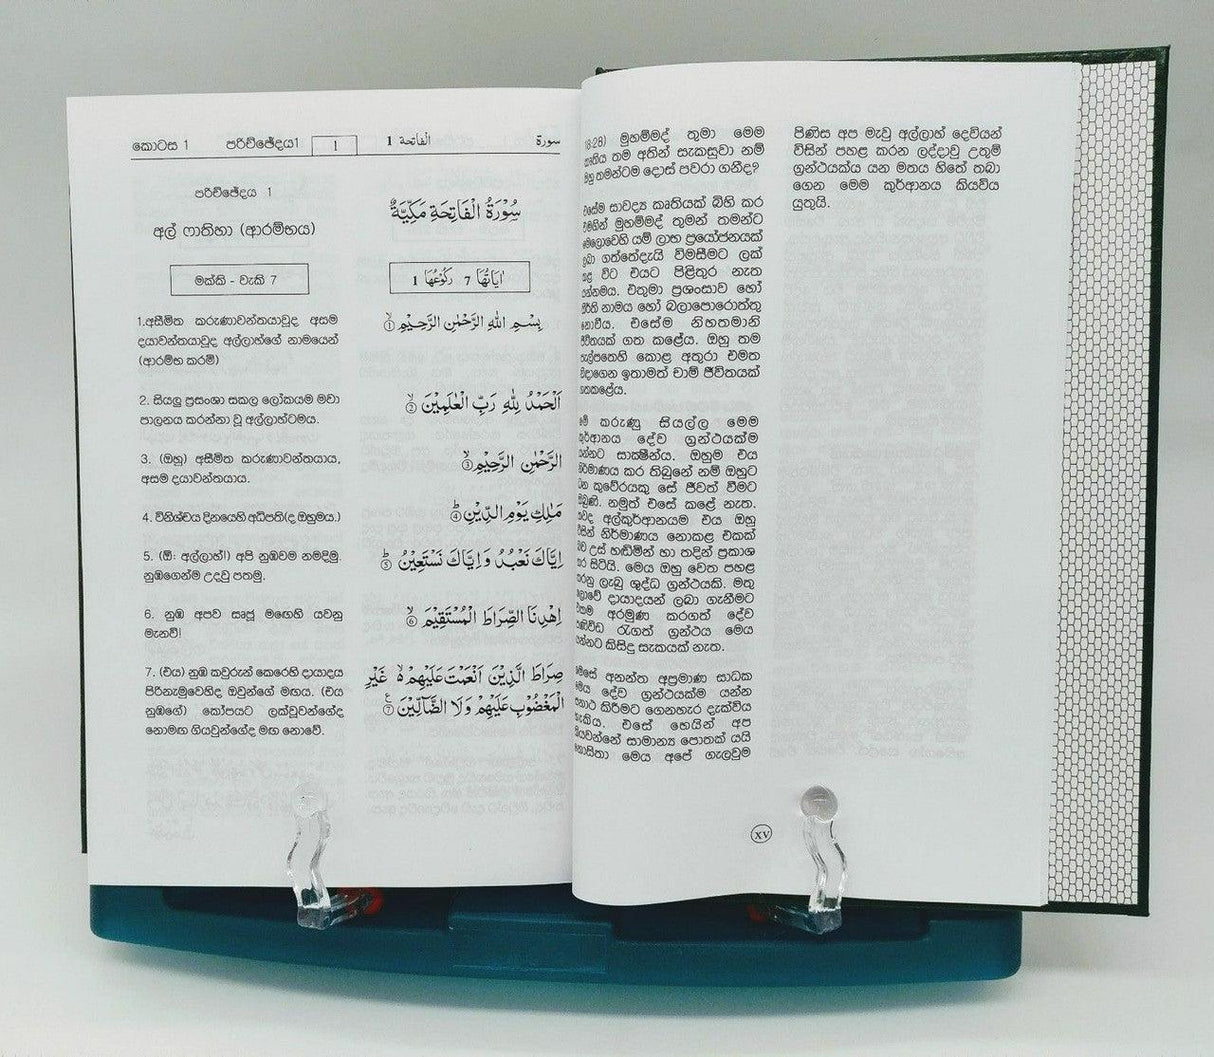 කොටස 1 පරිච්ඡේදය1 1 الفاتحة 1 سورة
පරිච්ඡේදය 1
අල් ෆාතිහා (ආරම්භය)
මක්කි - වැකි 7
1.අසීමිත කරුණාවන්තයාවූද අසම
දයාවන්තයාවූද අල්ලාහ්ගේ නාමයෙන්
(ආරම්භ කරමි)
2. සියලු ප්‍රසංශා සකල ලෝකයම මවා
පාලනය කරන්නා වූ අල්ලාහ්ටමය.
3. (ඔහු) අසීමිත කරුණාවන්තයාය,
අසම දයාවන්තයාය.
4. විනිශ්චය දිනයෙහි අධිපති(ද ඔහුමය.)
5. (ඕ: අල්ලාහ්!) අපි නුඹවම නමදිමු.
නුඹගෙන්ම උදවු පතමු.
6. නුඹ අපව සෘජු මඟෙහි යවනු
මැනවි!
7. (එය) නුඹ කවුරුන් කෙරෙහි දායාදය
පිරිනැමුවෙහිද ඔවුන්ගේ මඟය. (එය
නුඹගේ) කෝපයට ලක්වූවන්ගේද
නොමඟ ගියවුන්ගේද මඟ නොවේ.
سُوْرَةُ الْفَاتِحَةِ مَكِّيَّةٌ
اٰيَاتُهَا 7 رُكُوْعُهَا 1
بِسْمِ اللّٰهِ الرَّحْمٰنِ الرَّحِيْمِ ①
اَلْحَمْدُ لِلّٰهِ رَبِّ الْعٰلَمِيْنَ ②
الرَّحْمٰنِ الرَّحِيْمِ ③
مٰلِكِ يَوْمِ الدِّيْنِ ④
اِيَّاكَ نَعْبُدُ وَاِيَّاكَ نَسْتَعِيْنُ ⑤
اِهْدِنَا الصِّرَاطَ الْمُسْتَقِيْمَ ⑥
صِرَاطَ الَّذِيْنَ اَنْعَمْتَ عَلَيْهِمْ غَيْرِ
الْمَغْضُوْبِ عَلَيْهِمْ وَلَا الضَّآلِّيْنَ ⑦
8:28) මුහම්මද් තුමා මෙම
කෘතිය තම අතින් සැකසූවා නම්
ඔහු තමන්ටම දොස් පවරා ගනීද?
එසේම සාවද්‍ය කෘතියක් බිහි කර
එමගින් මුහම්මද් තුමන් තමන්ට
මෙලොවෙහි යම් ලාභ ප්‍රයෝජනයක්
ලබා ගත්තේදැයි විමසීමට ලක්
කළ විට එයට පිළිතුර නැත
යන්නමය. එතුමා ප්‍රශංසාව හෝ
කීර්ති නාමය හෝ බලාපොරොත්තු
නොවීය. එසේම නිහතමානි
ජීවිතයක් ගත කළේය. ඔහු තම
පැල්පතෙහි කොළ අතුරා එමත
නිදාගෙන ඉතාමත් චාම් ජීවිතයක්
ගතකළේය.
මේ කරුණු සියල්ල මෙම
කුර්ආනය දේව ග්‍රන්ථයක්ම
යන්නට සාක්ෂීන්ය. ඔහුම එය
නිර්මාණය කර තිබුනේ නම් ඔහුට
ධන කුවේරයකු සේ ජීවත් වීමට
තිබුණි. නමුත් එසේ කළේ නැත.
තවද අල්කුර්ආනයම එය ඔහු
විසින් නිර්මාණය නොකළ එකක්
බව උස් හඬින් හා තදින් ප්‍රකාශ
කර සිටියි. මෙය ඔහු වෙත පහළ
කරනු ලැබූ ශුද්ධ ග්‍රන්ථයකි. මතු
ලොවේ දායාදයන් ලබා ගැනීමට
එකම අරමුණ කරගත් දේව
පණිවිඩ රැගත් ග්‍රන්ථය මෙය
යන්නට කිසිදු සැකයක් නැත.
මෙසේ අනන්ත අප්‍රමාණ සාධක
මෙය දේව ග්‍රන්ථයක්ම යන්න
සනාථ කිරීමට ගෙනහැර දැක්විය
හැකිය. එසේ හෙයින් අප
කියවන්නේ සාමාන්‍ය පොතක් යයි
නොසිතා මෙය අපේ ගැලවුම
පිණිස අප මැවූ අල්ලාහ් දෙවියන්
විසින් පහළ කරන ලද්දාවූ උතුම්
ග්‍රන්ථයක්ය යන මතය හිතේ තබා
ගෙන මෙම කුර්ආනය කියවිය
යුතුයි.
XV